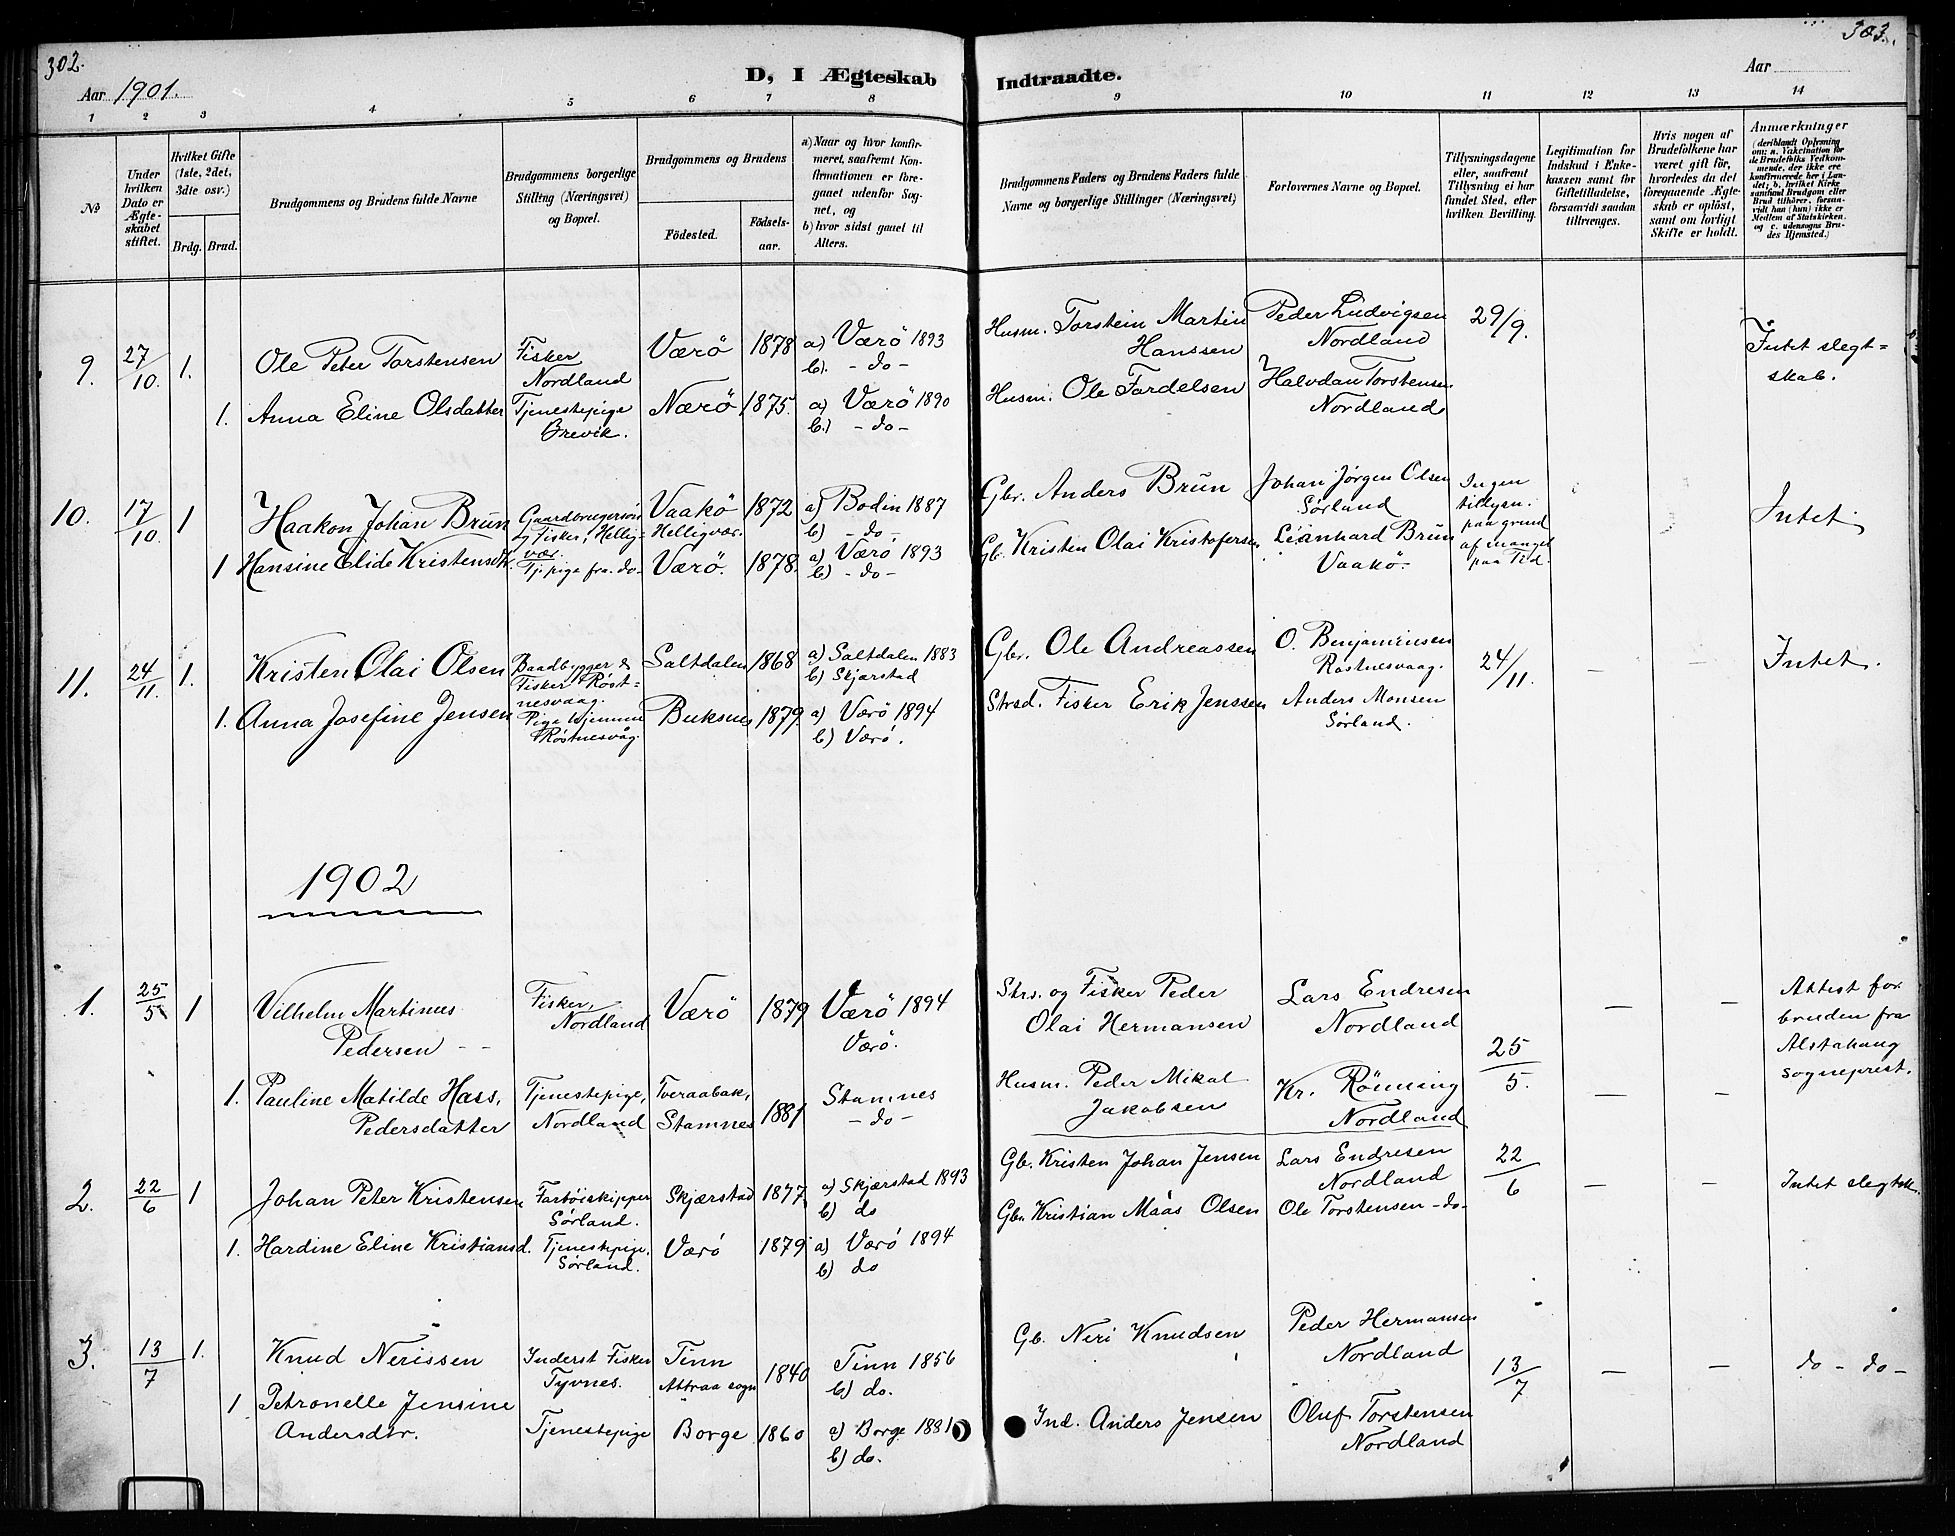 302.
303.
D, I Ægteskab
Indtraadte.
Aar 1901.
Aar
1 2 3 4 5 6 7 8 9 10 11 12 13 14
№
Under hvilken Dato er Ægteskabet stiftet.
Hvilket Gifte (1ste, 2det, 3die osv.)
Brdg. Brud.
Brudgommens og Brudens fulde Navne
Brudgommens borgerlige Stilling (Næringsvei) og Bopæl.
Brudgommens og Brudens
Fødested.
Fødselsaar.
a) Naar og hvor konfirmeret, saafremt Konfirmationen er foregaaet udenfor Sognet, og
b) hvor sidst gaaet til Alters.
Brudgommens Faders og Brudens Faders fulde Navne og borgerlige Stillinger (Næringsvei)
Forlovernes Navne og Bopæl.
Tillysningsdagene eller, saafremt Tillysning ei har fundet Sted, efter hvilken Bevilling.
Legitimation for Indskud i Enkekassen samt for Giftetilladelse, forsaavidt saadan tiltrænges.
Hvis nogen af Brudefolkene har været gift før, hvorledes da det foregaaende Ægteskab er opløst, samt om lovligt Skifte er holdt.
Anmærkninger (deriblandt Oplysning om: a. Vakcination for de Brudefolks Vedkommende, der ikke ere konfirmerede her i Landet; b. hvilket Kirkesamfund Brudgom eller Brud tilhører, forsaavidt han (hun) ikke er Medlem af Statskirken, og c. udensogns Brudes Hjemsted.)
9. 27/10. 1. Ole Peter Torstensen Fisker Nordland Værö 1878 a) Værö 1893 b). - do - Husm. Torstein Martin Hanssen Peder Ludvigsen Nordland 29/9. Intet slegtskab.
1. Anna Eline Olsdatter Tjenestepige Brevik. Nærö 1875. a) Værö 1890 b.) - do - Husm. Ole Fardelsen Halvdan Torstensen Nordland
10. 17/10. 1 Haakon Johan Brun Gaardbrugersøn Fisker, Helligvær. Vaakö Helligvær. 1872 a) Bodin 1887 b) - do - Gbr. Anders Brun Johan Jørgen Olsen Sørland Ingen tillysn. paa grund af mangel paa Tid. Intet.
1 Hansine Elide Kristensdtr. Tj. pige fra - do - Værö. 1878. a) Værö 1893 b) - do - Gb. Kristen Olai Kristofersen Leanhard Brun Vaakö.
11. 24/11. 1. Kristen Olai Olsen Baadbygger & Fisker Røstnesvaag. Saltdalen 1868 a) Saltdalen 1883 b) Skjærstad Gbr. Ole Andreassen O. Benjaminsen Rastnesvaag. 24/11. — — Intet.
1. Anna Josefine Jensen Pige hjemme Røstnesvåg. Buksnes 1879. a) Værö 1894 b) Værö. Strsd. Fisker Erik Jenssen Anders Monsen Sørland.
1902
1. 25/5 1 Vilhelm Martinus Pedersen - - Fisker, Nordland Værö 1879 Værö 1894 Værö. Strs. og Fisker Peder Olai Hermansen Lars Endresen Nordland 25/5. — — Attest for bruden fra Alstahaug sogneprest.
1. Pauline Matilde Hass, Pedersdatter Tjenestepige, Nordland Tveraabak, Stamnes 1881 Stamnes - do - Husm. Peder Mikal Jakobsen Kr. Rönning Nordland — —
2. 22/6 1 Johan Peter Kristensen Fartöiskipper Sørland. Skjærstad 1877 a) Skjærstad 1893 b) do Gb. Kristen Johan Jensen Lars Endresen Nordland 22/6 — — Intet slegtsk.
1. Hardine Eline Kristiansd. Tjenestepige. Sørland. Værö 1879 a) Værö 1894 b) do Gbr. Kristian Måås Olsen Ole Torstensen - do -
3. 13/7 1. Knud Nerissen Inderst Fisker Tyvnes. Tinn Attraa sogn 1840 Tinn 1856 b) do. Gb. Neri Knudsen Peder Hermansen Nordland 13/7 — — do - do -
1 Petronelle Jensine Andersdtr. Tjenestepige Borge 1860 a) Borge 1881 b) do. Ind. Anders Jensen Oluf Torstensen Nordland